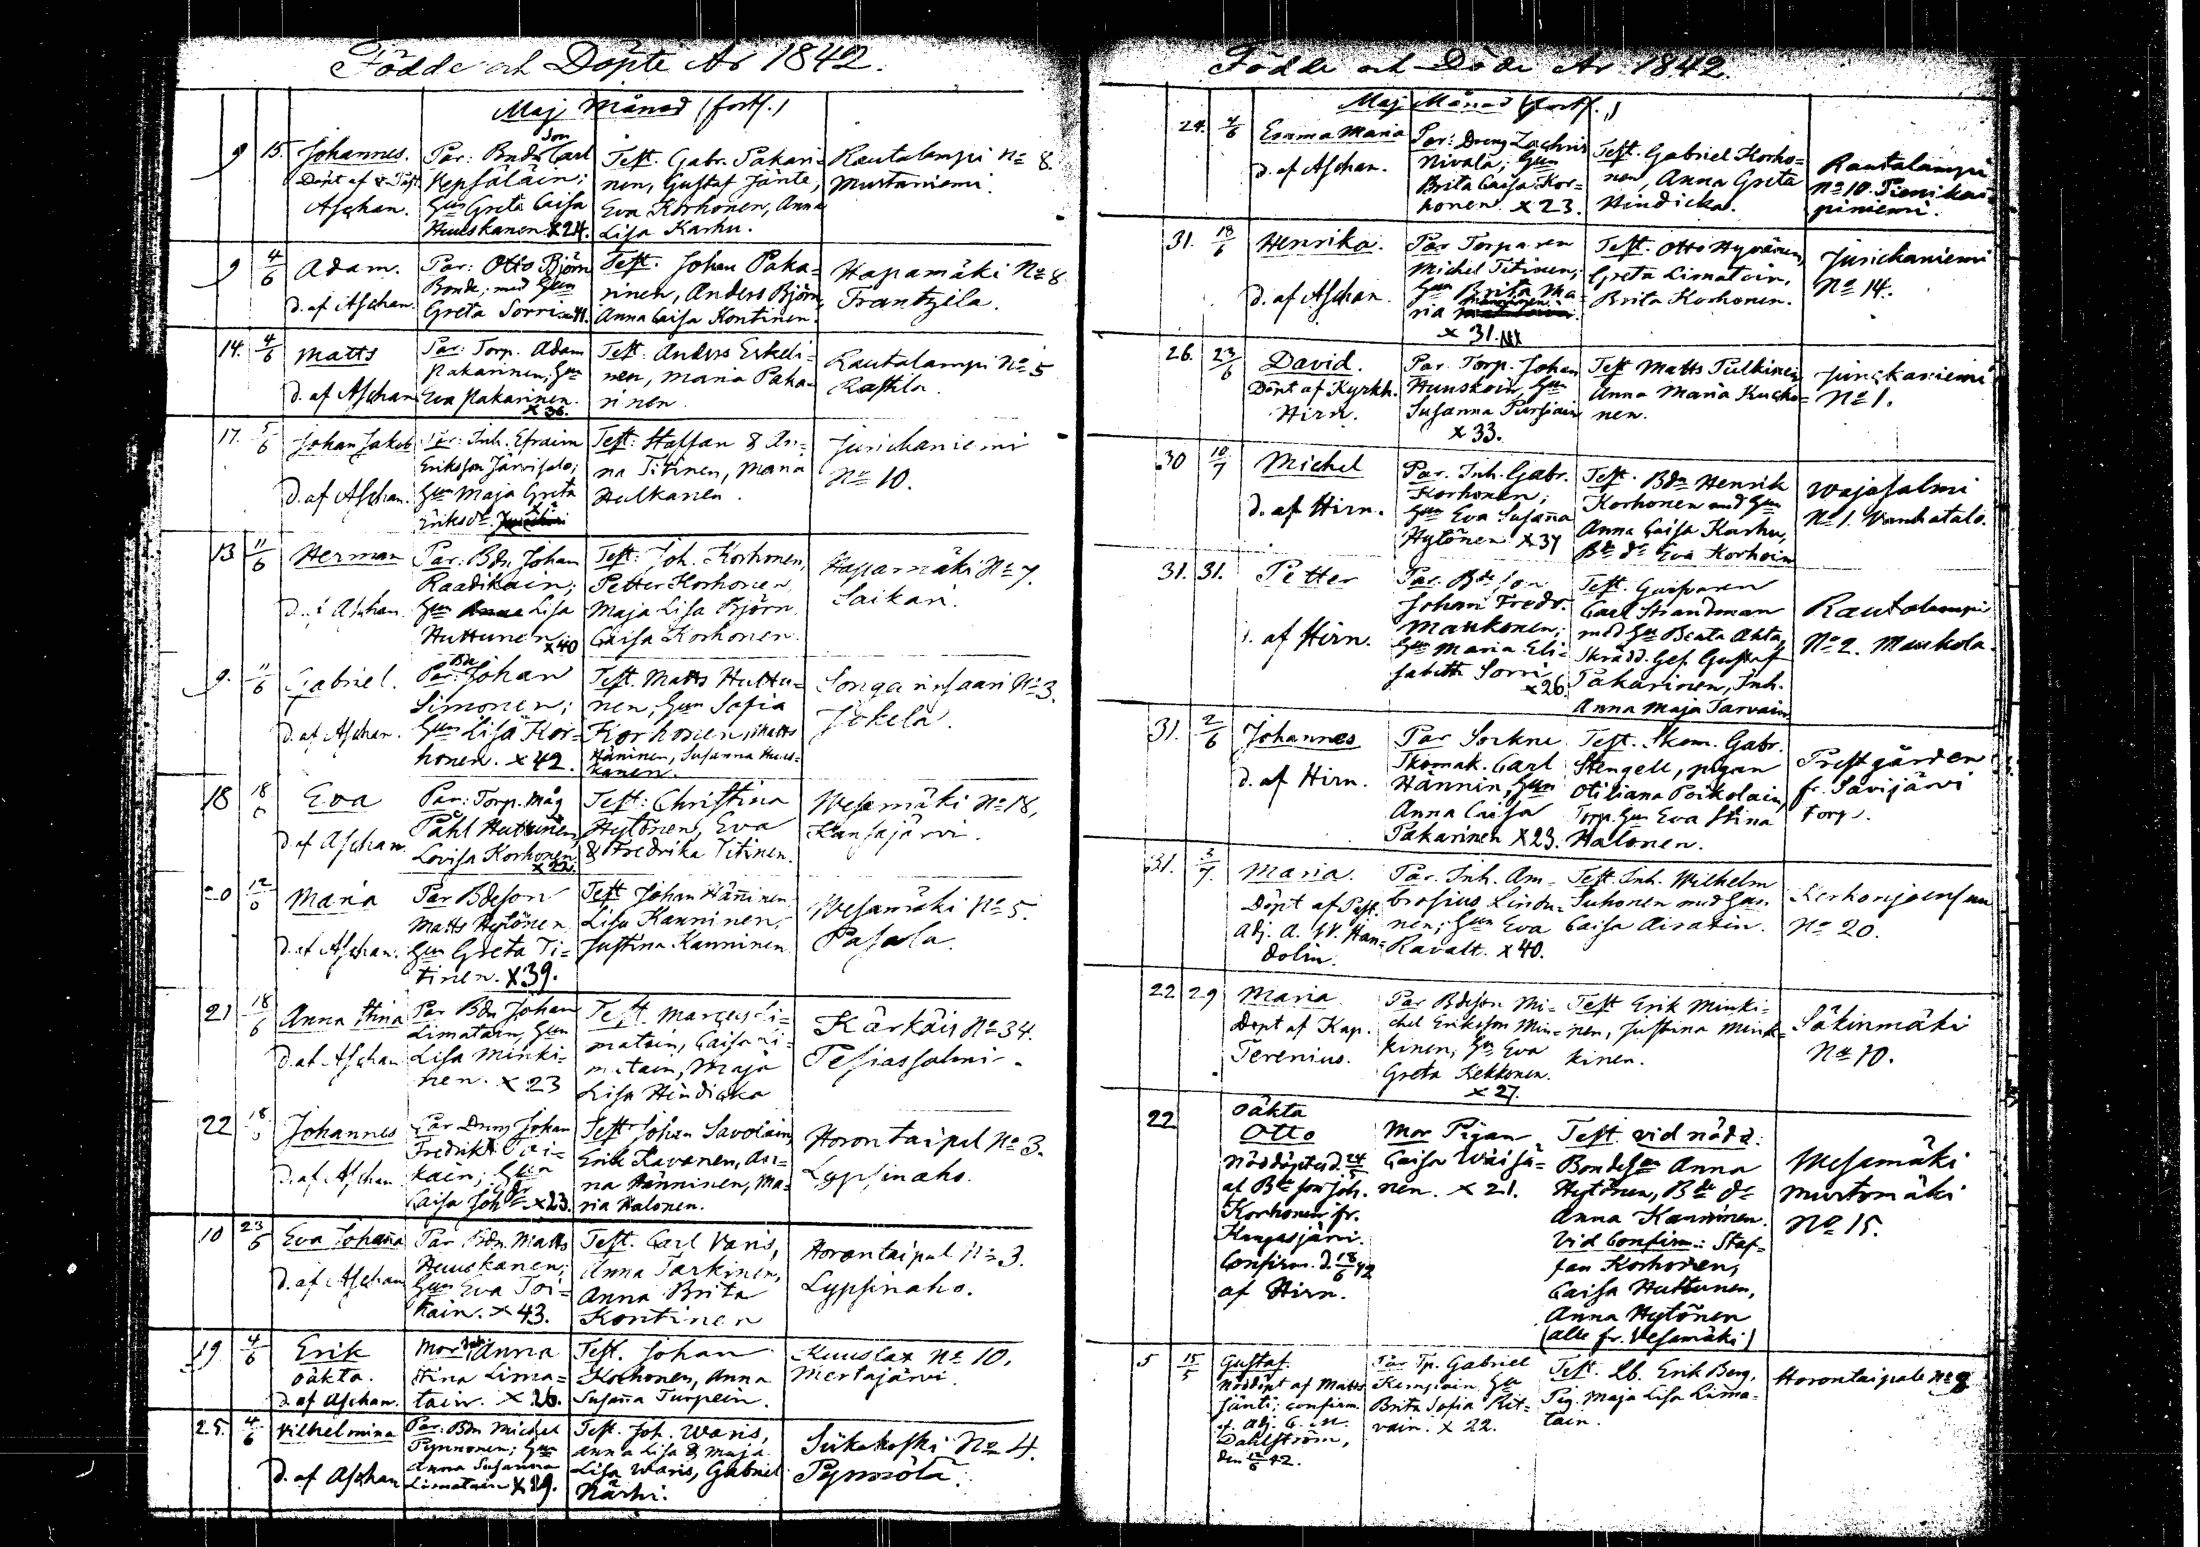 Födde och Döpte År 1842.
Maj Månad (fortf.)
9 15. Johannes.
Döpt af
Afchan.
Par: Bndn Son Carl
Hepsäläin;
Hun Greta Caisa
Huuskanen. x 24.
Test. Gabr. Pakari-
nen, Gustaf Jänte,
Eva Korhonen, Anna
Lisa Karhu.
Rautalampi No 8.
Murtoniemi.
9 4/6 Adam.
d. af Afchan.
Par: Otto Björn
Bonde; med Hun
Greta Sorri x 41.
Test. Johan Paka-
rinen, Anders Björn,
Anna Caisa Kontinen.
Hapamäki No 8
Frantzila.
14. 4/6 Matts
d. af Afchan
Par: Torp. Adam
Pakarinen; Hun
Eva Pakarinen.
x 36.
Test. Anders Erkeli-
nen, Maria Paka-
rinen.
Rautalampi No 5
Rastila.
17. 5/6 Johan Jakob
d. af Afchan.
Par: Inh. Efraim
Eriksson Järvisalo;
Hun Maja Greta
Eriksdr.
Test: Staffan & An-
na Titinen, Maria
Hulkanen.
Jurickaniemi
No 10.
13 11/6 Herman
d. af Afchan.
Par. Bdn Johan
Raadikain;
Hun Lisa
Huttunen x 40
Test: Joh. Korhonen,
Petter Korhonen,
Maja Lisa Björn,
Caisa Korhonen.
Hapamäki No 7.
Saikari.
9. 11/6 Gabriel.
d. af Afchan.
Par. Bdn Johan
Simonen;
Hun Lisa Kor-
honen. x 42.
Test. Matts Huttu-
nen, Hun Sofia
Korhonen, Matts
Häninen, Susanna Huus-
kanen.
Songarinsaari No 3.
Jokela.
18 18/6 Eva
d af Afchan
Par: Torp. Måg
Påhl Huttunen,
Lovisa Korhonen,
x 22.
Test: Christina
Hytönen, Eva
& Fredrika Titinen.
Wesamäki No 18,
Kansajärvi.
20 12/6 Maria
d. af Afchan.
Par Bdeson
Matts Hytönen
Hun Greta Ti-
tinen. x 39.
Test Johan Hänninen
Lisa Kanninen,
Justina Kanninen
Wesamäki No 5.
Pasala.
21 18/6 Anna Stina
d af Afchan
Par Bdn Johan
Limatain, Hun
Lisa Minki-
nen. x 23
Test. Marcus Li-
matain, Caisa Li-
matain, Maja
Lisa Hindicka
Kärkäis No 34.
Pesiassalmi.
22 18/6 Johannes
d. af Afchan
Par Dreng Johan
Fredrik
kain; Hun
Caisa Johdr x 23.
Test Johan Savolain,
Erik Kavonen, An-
na Hänninen, Ma-
ria Halonen.
Horontaipal No 3.
Lypsinaho.
10 23/6 Eva Johana
d. af Afchan
Par Bdn. Matts
Huuskanen;
Hun Eva Toi-
kain. x 43.
Test. Carl Varis,
Anna Tarkinen,
Anna Brita
Kontinen
Horontaipal No 3.
Lypsinaho.
19 4/6 Erik
oäkta.
d. af Afchan.
Mor Anna
Stina Lima-
tain. x 26.
Test. Johan
Korhonen, Anna
Susana Turpein.
Kuuslax No 10.
Mertajärvi.
25. 4/6 Vilhelmina
d. af Afchan
Par. Bdn Michel
Pynnonen; Hun
Anna Susanna
Limatain x 29.
Test. Joh. Waris,
Anna Lisa & Maja
Lisa Waris, Gabriel
Närhi.
Sükakoski No 4.
Pynnölä.
Födde och Döde År 1842.
Maj Månad (fortf.)
24. 4/6 Emma Maria
d. af Afchan.
Par: Dreng Zachris
Nivala; Hun
Brita Caisa Kor-
honen x 23.
Test. Gabriel Korho-
nen, Anna Greta
Hindicka.
Rautalampi
No 10. Pienikaa-
piniemi.
31. 18/6 Henrika.
d. af Afchan.
Par Torparen
Michel Titinen;
Hun Brita Ma-
ria
x 31.
Test. Otto Hyvönen,
Greta Limatain,
Brita Korhonen.
Jurickaniemi
No 14.
26. 23/6 David.
Döpt af Kyrkh.
Hirn.
Par. Torp. Johan
Huuskoin, Hun
Susanna Pursiain
x 33.
Test Matts Pulkinen,
Anna Maria Kucko-
nen.
Jurickaniemi
No 1.
30 10/7 Michel
d. af Hirn.
Par. Inh. Gabr.
Korhonen;
Hun Eva Susana
Hytönen x 37
Test. Bdn Henrik
Korhonen med Hun
Anna Caisa Karhu,
Bde dr Eva Korhoin
Wajasalmi
No 1. Vanhatalo.
31. 31. Petter
d. af Hirn.
Par. Bdeson
Johan Fredr.
Maukonen;
Hun Maria Eli-
sabeth Sorri
x 26.
Test. Garfvaren
Carl Strandman
med Hu Beata Ahta,
Skrädd. Ges. Gustaf
Pakarinen, Inh.
Anna Maja Tarvain
Rautalampi
No 2. Maukola.
31. 2/6 Johannes
d. af Hirn.
Par Sockne
Skomak. Carl
Hännin, Hun
Anna Caisa
Pakarinen x 23.
Test. Skom. Gabr.
Stengell, pigan
Otiliana Poikolain,
Torp. Hun Eva Stina
Halonen.
Prestgården
fr. Savijärvi
torp.
31. 3/7. Maria.
Döpt af Past.
Adj. A. W. Han-
dolin.
Par. Inh. Am-
brosius Lindu-
nen; Hun Eva
Ravatt. x 40.
Test. Inh. Wilhelm
Suhonen med Hun
Caisa Airatin.
Kerkonjoensuu
No 20.
22 29 Maria
Döpt af Kap.
Terenius.
Par Bdeson Mi-
chel Eriksson Min-
kinen; Hu Eva
Greta Kekkonen.
x 27.
Test Erik Minki-
nen, Justina Mink-
kinen.
Säkinmäki
No 10.
22 oäkta
Otto
Nöddöpt d. 24/5
af Bde son Joh.
Korhonen fr.
Kangasjärvi.
Confirm. d. 18/6 42
af Hirn.
Mor Pigan
Caisa Wäisä-
nen. x 21.
Test. vid nödd.
Bondehun Anna
Hytönen, Bde dr
Anna Kanninen.
Vid Confirm.: Staf-
fan Korhonen,
Caisa Huttunen,
Anna Hytönen
(alla fr. Vesamäki)
Wesamäki
Murtomäki
No 15.
5 15/5 Gustaf.
Nöddöpt af Matts
Jänti; confirm.
af Adj. C. N.
Dahlström,
den 12/6 42.
Par Tp. Gabriel
Kempiain Hu
Brita Sofia Kit-
vain. x 22.
Test. Lb. Erik Berg,
Pig. Maja Lisa Lima-
tain.
Horontaipale No 8